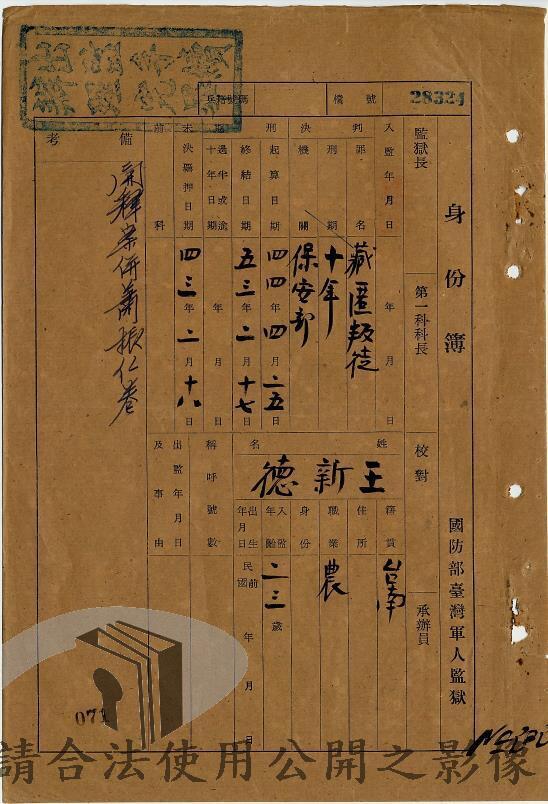 檔號 28324
兵籍號碼
身份簿
國防部臺灣軍人監獄
監獄長
第一科科長
校對
承辦員
入監年月日 年 月 日
判罪名 藏匿叛徒
刑期 十年
決機關 保安部
刑起算日期 四四年四月二五日
終結日期 五三年二月十七日
過半或逾十年日期 年 月 日
未決羈押日期 四三年二月十八日
前科
姓名 王新德
籍貫 台南
住所
職業 農
身份
入監年齡 二三歲
出生年月日 民前國 年 月 日
稱呼號數
出監年月日及事由
備考
蕭振仁卷
071
請合法使用公開之影像